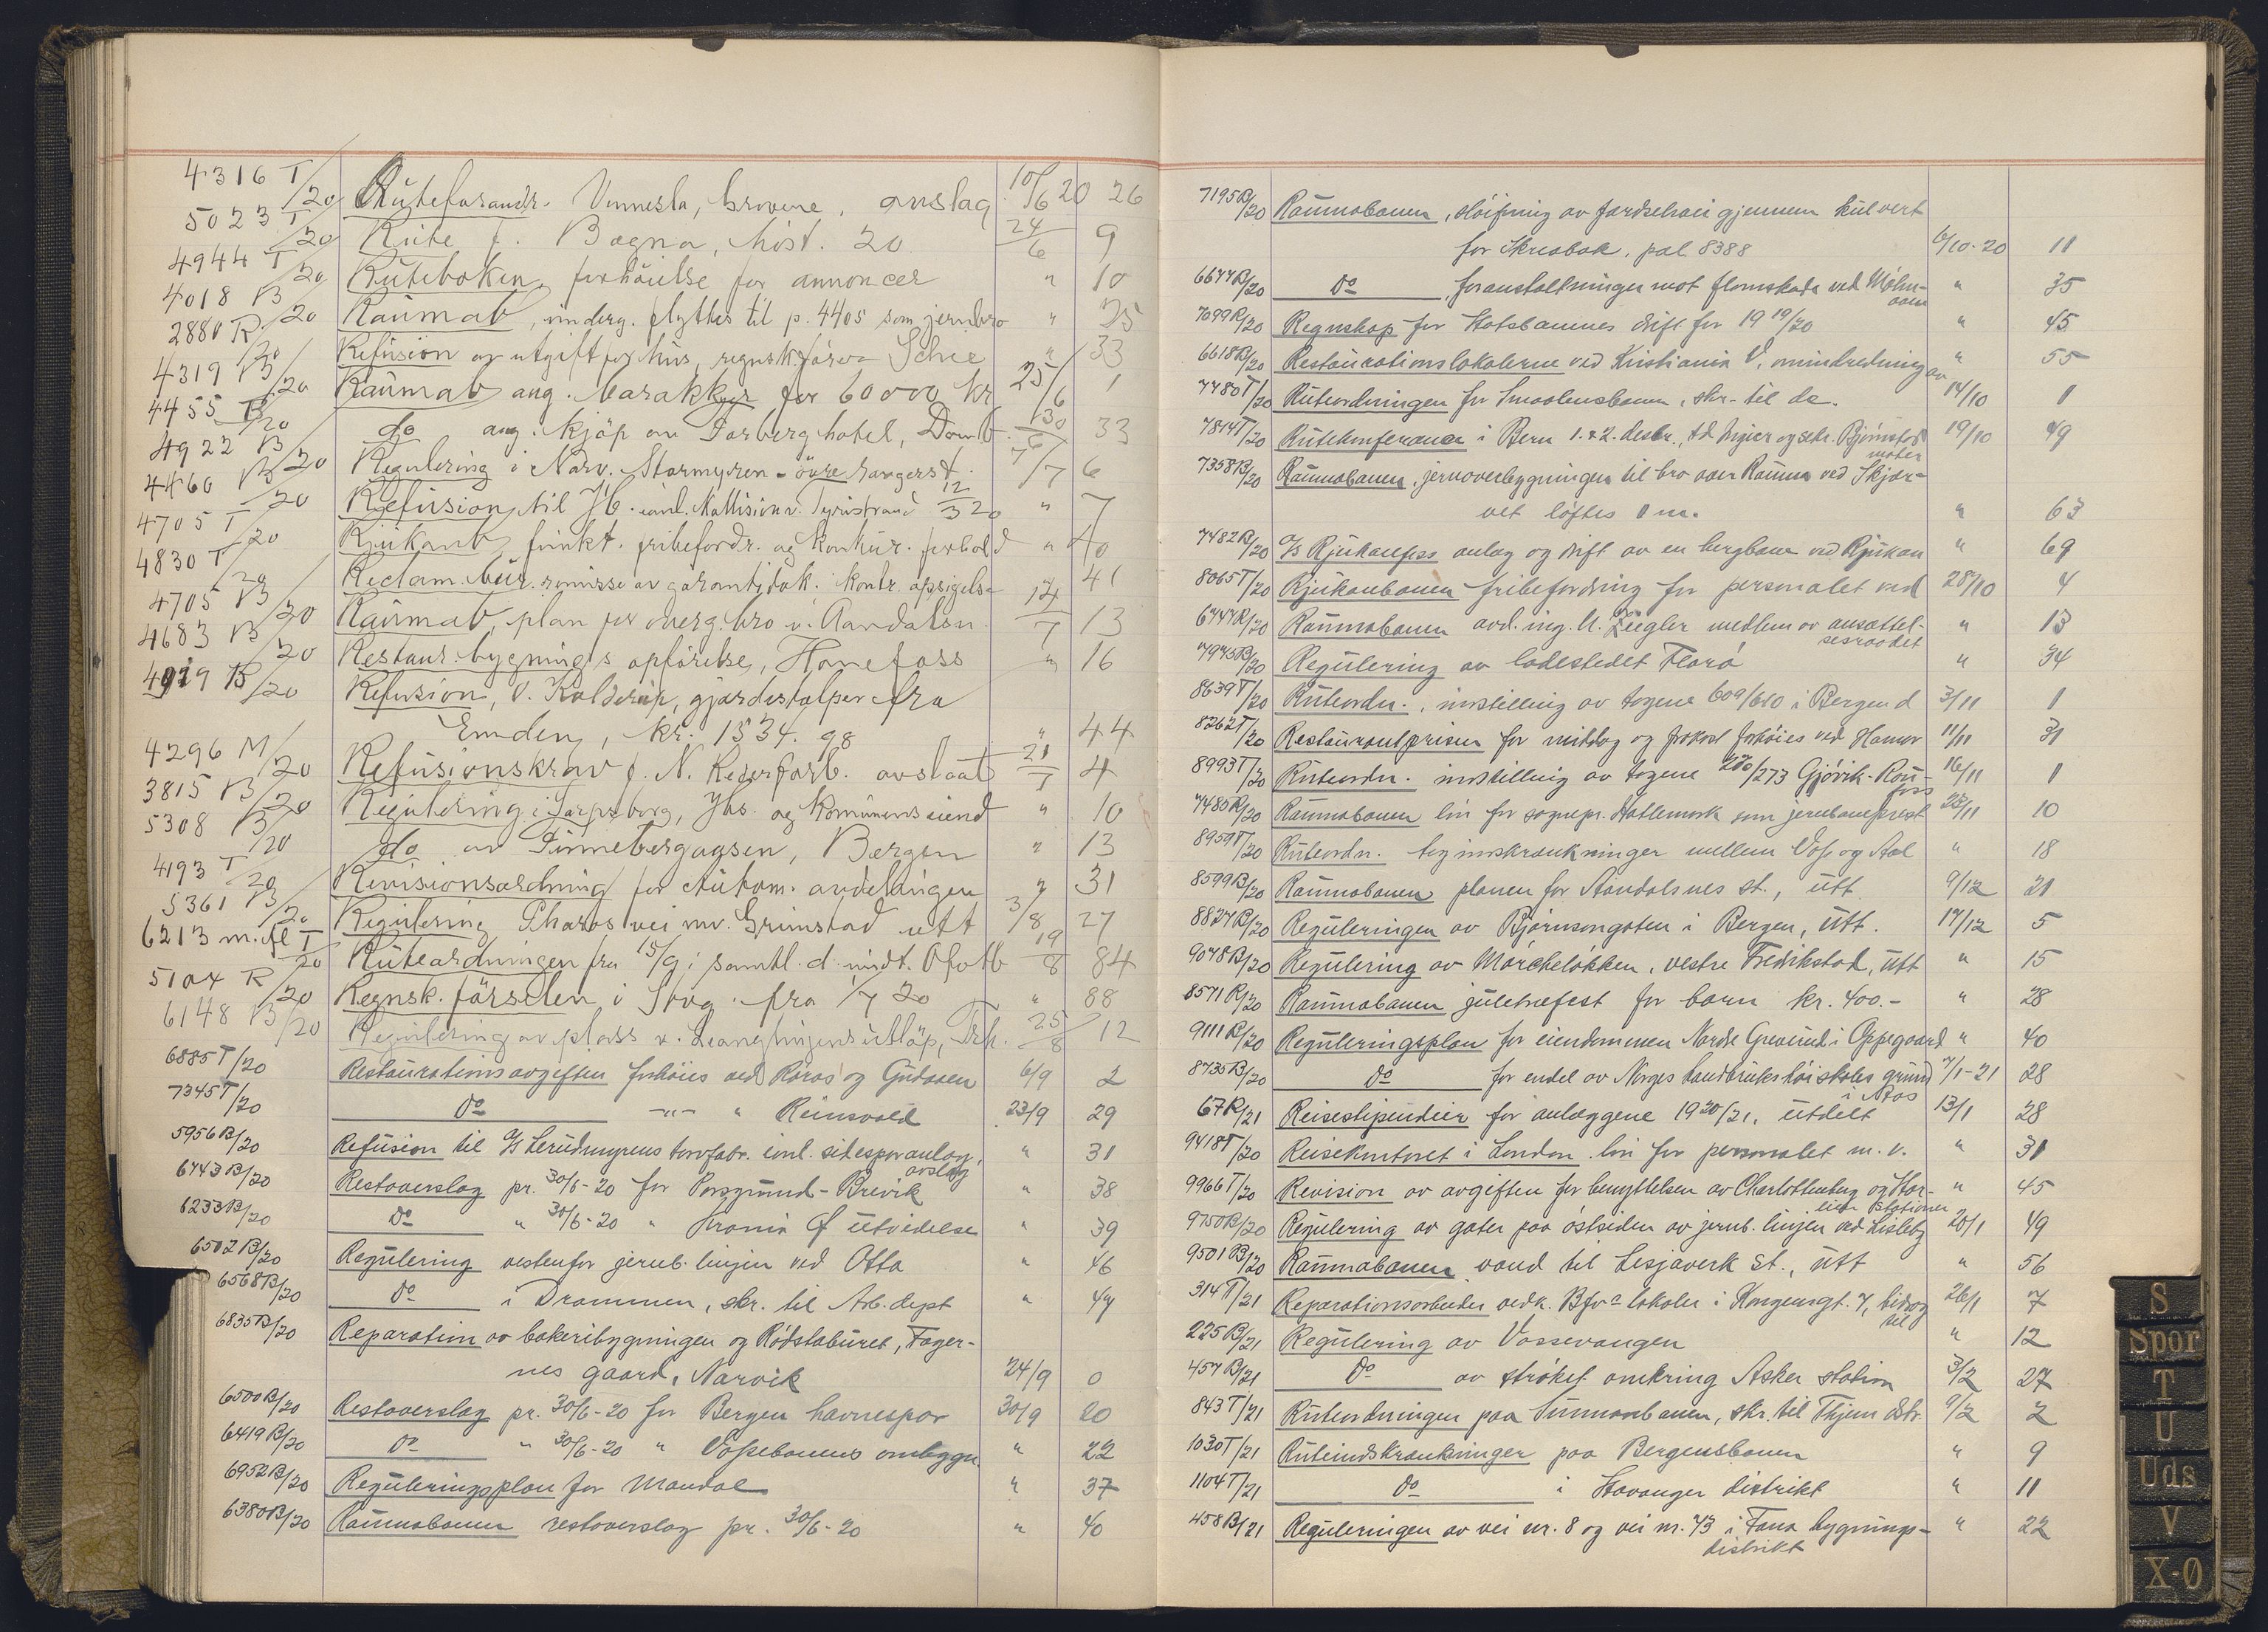 4316 T/20 Ruteforandr. Vennesla, brovene, anslag 10/6 20 26
5023 T/20 Rute f. Bagna, høst. 20 24/6 9
4944 T/20 Ruteboken, forhøielse for annoncer " 10
4018 B/20 Raumab, underg. flyttes til p. 4405 som jernbro " 25
2880 R/20 Refusion av utgift for hus, regnsk.fører Schie " 33
4319 B/20 Raumab ang. barakker for 60000 kr 25/6 1
4455 B/20 do ang. kjøp av hotel, Domb. 30/6 33
4922 B/20 Regulering i Narv. Stormyren - øvre rangerst. 7/7 6
4460 B/20 Refusion til Hb. Tyristrand 12/3 20 " 7
4705 T/20 Rjukanb, funkt. fribefordr. og konkur. forbold " 40
4830 T/20 Reclam. bur. remisse av garantidok. kontr. opsigelse 41
4705 B/20 Raumab, plan for overg. bro v. Aandalsn. 14/7 13
4683 B/20 Restaur. bygnings opførelse, Hønefoss " 16
4919 B/20 Refusion, V. Kolderup, gjærdestolper fra
Emden, kr. 1534.98 " 44
4296 M/20 Refusionskrav f. N. Rederforb. avslaat 21/7 4
3815 B/20 Regulering i Sarpsborg, Jbs. og Kommunens eiend " 10
5308 B/20 do av Finnebergaasen, Bergen " 13
493 T/20 Revisionsordning for Autom. avdelingen " 31
5361 B/20 Regulering Pharos vei mv. Grimstad utt 3/8 27
6213 m. fl T/20 Ruteordningen fra 15/9 i samtl. d. undt. Ofotb 19/8 84
5104 R/20 Regnsk. førselen i Stvg. fra 1/7 20 " 88
6148 B/20 Regulering av plass v. Leangbugens utløp, Trh. 25/8 12
6885 T/20 Restaurationsavgiften forhøies ved Røros og Gudaaen 6/9 2
7345 T/20 Do -"- " Reinsvold 23/9 29
5956 B/20 Refusion til A/s Lerudmyrens torvfabr. sidesporanlæg,
avslag " 31
6743 B/20 Restoverslag pr. 30/6-20 for Porsgrund - Brevik " 38
6233 B/20 Do " 30/6-20 " Krania Ø utvidelse " 39
6502 B/20 Regulering vestenfor jernb. linjen ved Otta " 46
6568 B/20 Do i Drammen, skr. til Arb. dept " 47
6835 B/20 Reparation av bakeribygningen og Rødstaburet, Fager-
nes gaard, Narvik 24/9 0
6500 B/20 Restoverslag pr. 30/6-20 for Bergen havnespor 30/9 20
6419 B/20 Do " 30/6-20 " Vossebanens ombygn. " 22
6952 B/20 Reguleringsplan for Mandal " 37
6380 B/20 Raumabanen restoverslag pr. 30/6-20 " 40
7195 B/20 Raumabanen, sløifning av færdselsvei gjennem kulvert
for Skreabæk, pæl 8388 6/10-20 11
6677 B/20 Do foranstaltninger mot flomskade ved Mølm-
aaen " 35
7099 R/20 Regnskap for Statsbanenes drift for 1919/20 " 45
6618 B/20 Restaurationslokalerne ved Kristiania V. omindredning av " 55
7780 T/20 Ruteordningen for Smaalensbanen, skr. til dc. 14/10 1
7814 T/20 Rutekonferance i Bern 1. & 2. desbr., td. Meier og sekr. Bjørnstad
møter 19/10 49
7358 B/20 Raumabanen, jernoverbygningen til bro over Rauma ved Skjær-
vet løftes 1 m. " 63
7482 B/20 A/s Rjukanfoss anlæg og drift av en bergbane ved Rjukan " 69
8065 T/20 Rjukanbanen fribefordring for personalet ved 28/10 4
6747 R/20 Raumabanen avd. ing. U. Ziegler medlem av ansættel-
sesraadet " 13
7975 B/20 Regulering av ladestedet Florø " 34
8639 T/20 Ruteordn., instilling av togene 609/610 i Bergen d 3/11 1
8262 T/20 Restaurantpriser for middag og frokost forhøies ved Hamar 11/11 31
8993 T/20 Ruteordn. instilling av togene 270/273 Gjøvik-Rau-
foss 16/11 1
7485 R/20 Raumabanen løn for sognepr. Hatlemark som jernbaneprest 23/11 10
8959 T/20 Ruteordn. toginskrænkninger mellem Voss og Aal " 18
8599 B/20 Raumabanen planen for Aandalsnes st., utt. 9/12 21
8827 B/20 Reguleringen av Bjørnsonsgaten i Bergen, utt. 17/12 5
9048 B/20 Regulering av Mørcheløkken, vestre Fredrikstad, utt " 15
8571 R/20 Raumabanen juletræfest for barn kr. 400.- " 28
9111 R/20 Reguleringsplan for eiendommen Nordre Greverud i Oppegaard " 40
8735 B/20 Do for endel av Norges Landbrukshøiskoles grund
i Aas 7/1-21 28
67 R/21 Reisestipendier for anlæggene 1920/21, utdelt 13/1 28
9418 T/20 Reisekontoret i London. løn for personalet m. v. " 31
9966 T/20 Revision av avgiften for benyttelsen av Charlottenberg og Stor-
lien Stationer " 45
9750 B/20 Regulering av gater paa østsiden av jernb. linjen ved Lisleby 20/1 49
9501 B/20 Raumabanen vand til Lesjaverk St., utt " 56
314 T/21 Reparationsarbeider vedk. Bfvs lokaler i Kongensgt. 7, bidrag
til 26/1 7
225 B/21 Regulering av Vossevangen " 12
457 B/21 Do av strøket omkring Asker station 3/2 27
843 T/21 Ruteordningen paa Sunnanbanen, skr. til Thjem dstr. 9/2 2
1030 T/21 Ruteindskrænkninger paa Bergensbanen " 9
1104 T/21 Do i Stavanger distrikt " 11
458 B/21 Reguleringen av vei nr. 8 og vei nr. 73 i Fana bygnings-
distrikt " 22
S
Spor
T
U
Uds
V
X-Ø